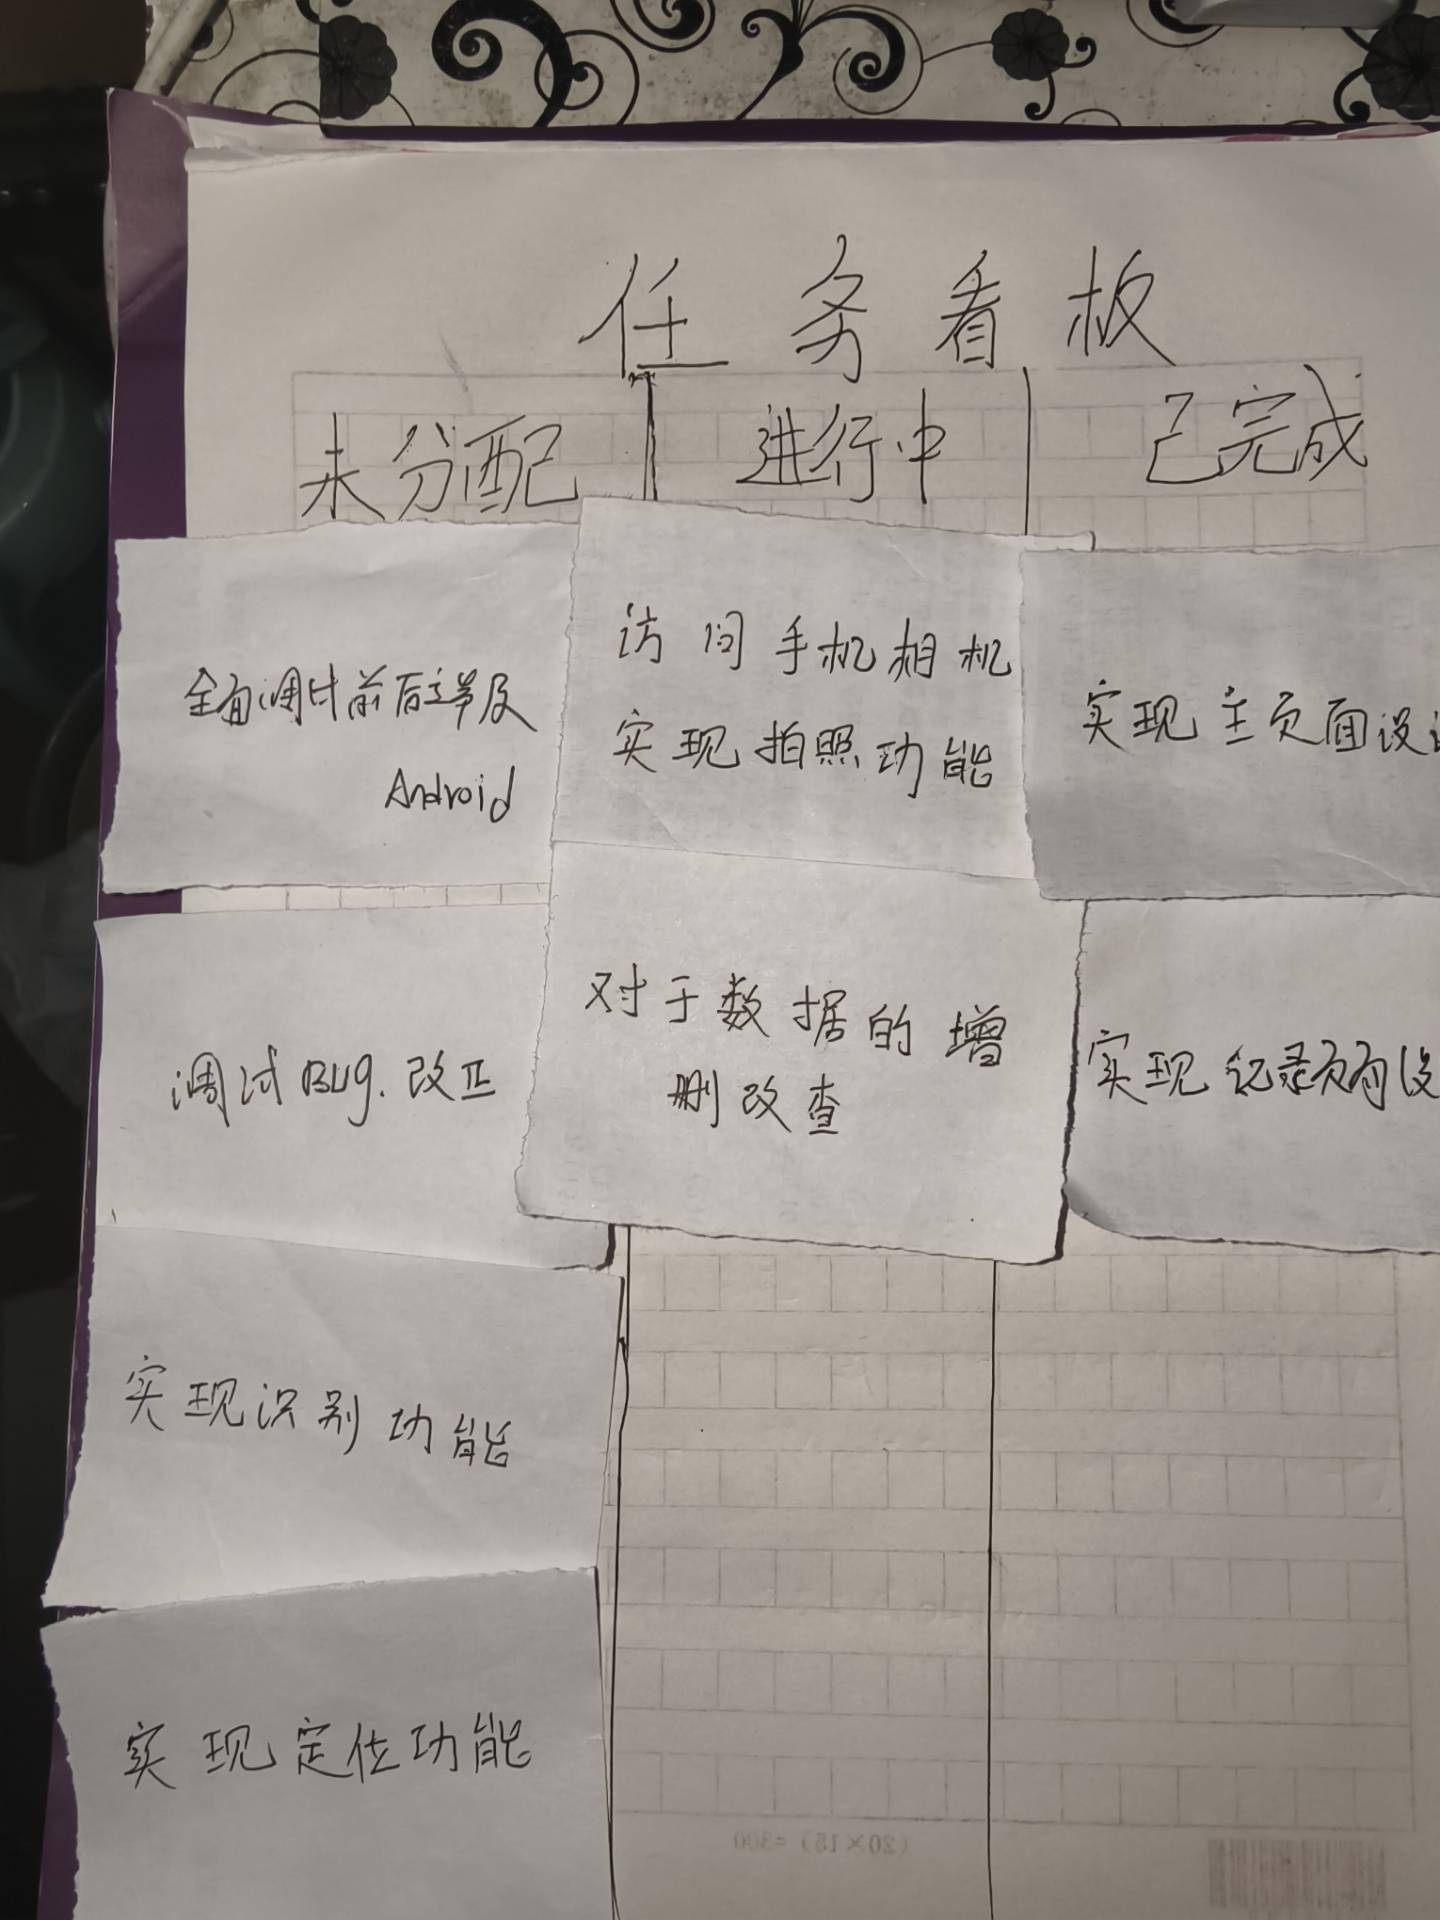 任务看板
未分配 进行中 已完成
全面调试前后端及
Android
访问手机相机
实现拍照功能
实现主页面设
调试Bug.改正
对于数据的增
删改查
实现记录页面设
实现识别功能
实现定位功能
(20×15)=300